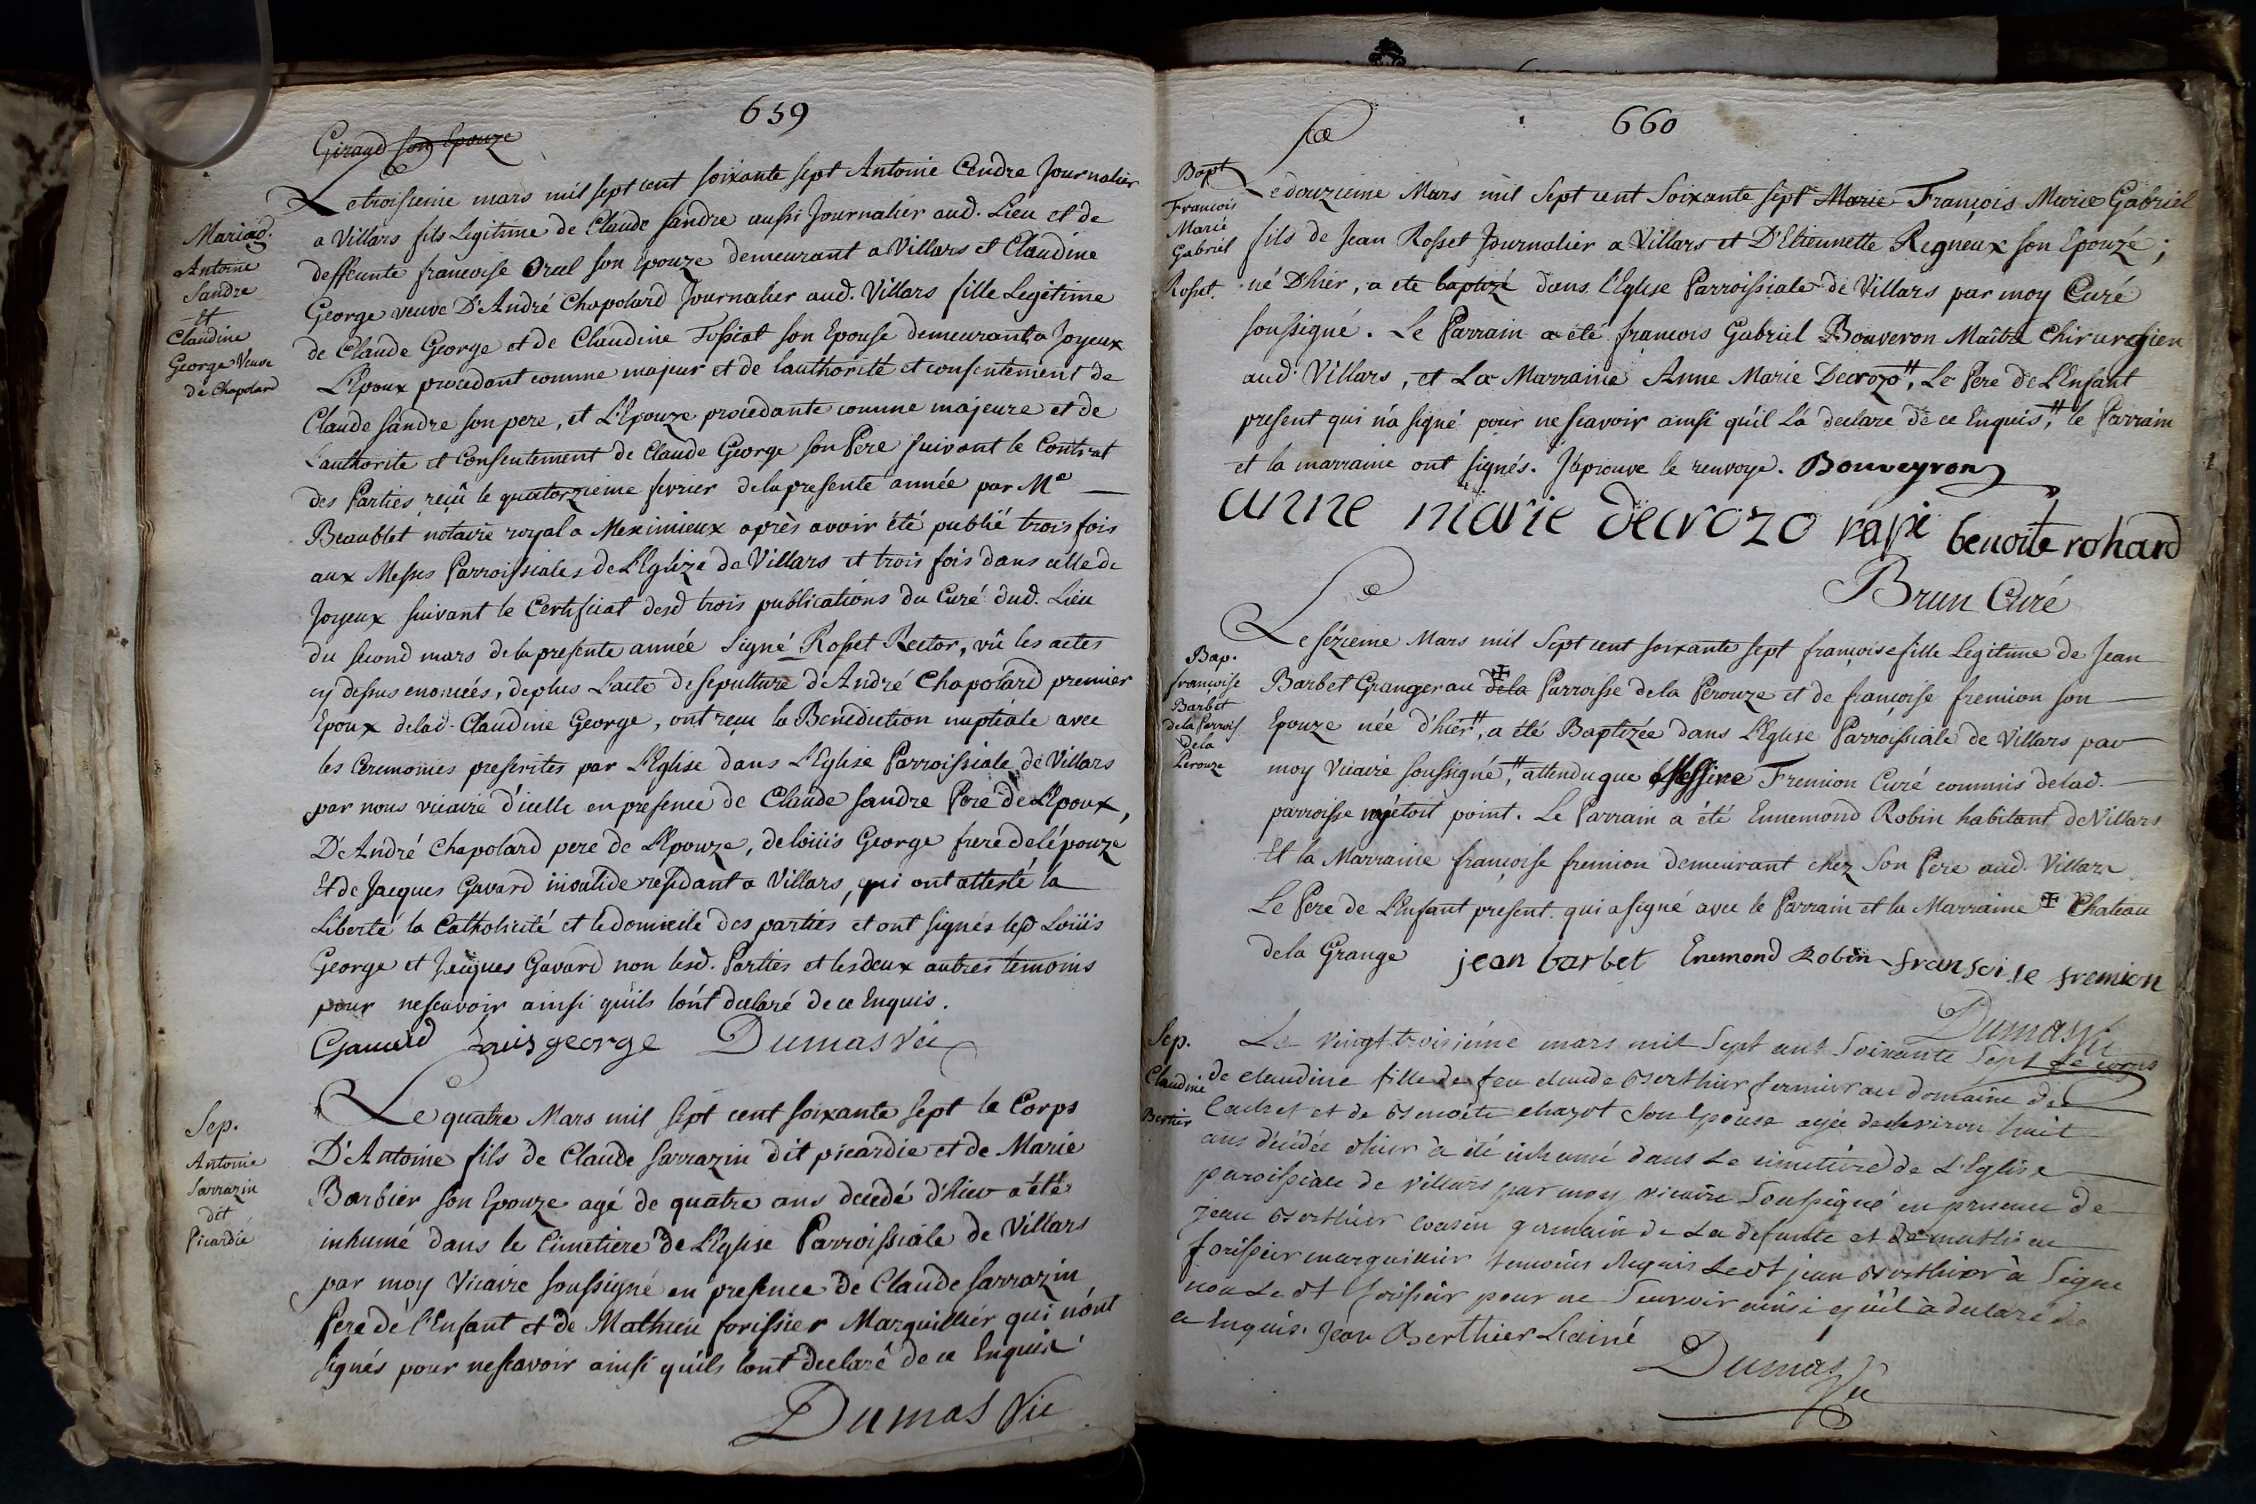 659
Giraud son Epouze
Le troisieme mars mil sept cent soixante sept Antoine Cendre Journalier
a Villars fils Legitime de Claude sandre aussi Journalier aud. Lieu et de
deffeunte francoise Orcel son epouze demeurant a Villars et Claudine
George veuve D'André Chapolard Journalier aud. Villars fille Legitime
de Claude George et de Claudine son Epouse demeurant a Joyeux
L'Epoux procedant comme majeur et de lauthorité et consentement de
Claude sandre son pere, et L'Epouze procedante comme majeure et de
Lauthorite et Consentement de Claude George son Pere suivant le Contrat
des Parties reçû le quatorzieme fevrier de la presente année par Me
Beaublet notaire royal a Meximieux après avoir été publié trois fois
aux Messes Parroissiales de L'Eglize de Villars et trois fois dans celle de
Joyeux suivant le Certificat desd trois publications du Curé dud. Lieu
du second mars de la presente année Signé Rosset Rector, vû les actes
cy dessus enoncées, de plus L'acte de sepulture d'André Chapolard premier
Epoux de lad. Claudine George, ont reçu la Benediction nuptiale avec
les Ceremonies prescrites par L'Eglise dans L'Eglise Parroissiale de Villars
par nous vicaire d'icelle en presence de Claude sandre Pere de L'Epoux,
D'André Chapolard pere de L'Epouze, de loüis George frere de lépouze
Et de Jacques Gavard invalide residant a Villars, qui ont attesté la
Liberté la Catholicité et le domicile des parties et ont signés lesd Loüis
George et Jacques Gavard non lesd. Parties et les deux autres temoins
pour nescavoir ainsi qu'ils lónt declaré de ce Enquis.
Gavard Louis george Dumas Vic
Mariag.
Antoine
Sandre
Et
Claudine
George Veuve
de Chapolard
Le quatre Mars mil sept cent soixante sept le Corps
D'Antoine fils de Claude Sarrazin dit picardie et de Marie
Barbier son Epouze agé de quatre ans decedé d'hier a été
inhumé dans le Cimetiere de L'Eglise Parroissiale de Villars
par moy Vicaire soussigné en presence de Claude Sarrazin
Pere de l'Enfant et de Mathieu forissier Marguillier qui n'ónt
signés pour nescavoir ainsi qu'ils lont declaré de ce Enquis
Dumas Vic
Sep.
Antoine
Sarrazin
dit
Picardie
660
Le douzieme Mars mil Sept cent Soixante sept Marie François Marie Gabriel
fils de Jean Rosset Journalier a Villars et D'Etiennette Regneux son Epouze;
né D'hier, a ete baptizé dans l'Eglise Parroissiale de Villars par moy Curé
soussigné. Le Parrain a été francois Gabriel Bouveron Maître Chirurgien
aud. Villars, et La Marraine Anne Marie Decrozo, Le Pere de L'Enfant
present qui n'a signé pour ne scavoir ainsi qu'il l'a declaré de ce Enquis, le Parrain
et la marraine ont signés. J'aprouve le renvoye. Bouveyron
anne marie decrozo benoite rohard
Brun Curé
Bapt
Francois
Marie
Gabriel
Rosset.
Le sézieme Mars mil Sept cent soixante sept françoise fille Legitime de Jean
Barbet Granger au de la Parroisse de la Perouze et de françoise fremion son
Epouze née d'hier, a été Baptizée dans L'Eglise Parroissiale de Villars par
moy Vicaire soussigné, attendu que Messire Fremion Curé commis de lad.
parroisse n'y étoit point. Le Parrain a été Ennemond Robin habitant de Villars
Et la Marraine françoise fremion demeurant chez Son Pere aud. Villars
Le Pere de L'Enfant présent qui a signé avec le Parrain et la Marraine Chateau
de la Grange jean barbet Enemond Robin fransoise fremion
Dumas Vic
Bap.
françoise
Barbet
de la Parrois.
de la
Perouze
Le vingt troisiéme mars mil Sept cent Soixante Sept Le corps
de claudine fille de feu claude Berthier fermier au domaine de
et de Benoite chazot Son Epouse agée d'environ huit
ans décédée d'hier à été inhumé dans Le cimetiere de L'Eglise
paroissiale de villars par moy vicaire Soussigné en presence de
jean Berthier cousin germain de La defunte et de mathieu
forissier marguillier temoins Requis Ledt jean Berthier à Signé
non Ledt forissier pour ne Scavoir ainsi qu'il à declaré de
ce Enquis. Jean Berthier Lainé
Dumas
Vic
Sep.
Claudine
Bertier